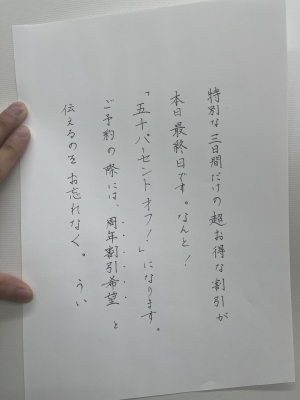 特別な三日間だけの超お得な割引が
本日最終日です。なんと！
「五十パーセントオフ！」になります。
ご予約の際には、周年割引希望と
伝えるのをお忘れなく。　うい